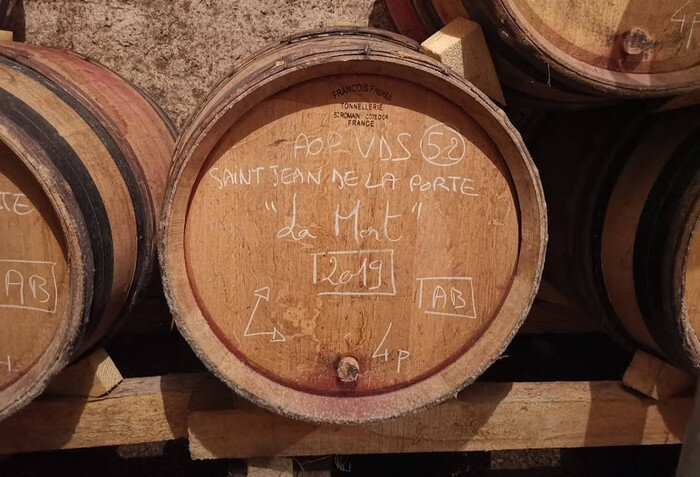 TE
AB
FRANÇOIS FRÈRES
TONNELLERIE
ST ROMAIN CÔTE D'OR
FRANCE
AOP VDS 52
SAINT JEAN DE LA PORTE
"La Mort"
2019
AB
4p